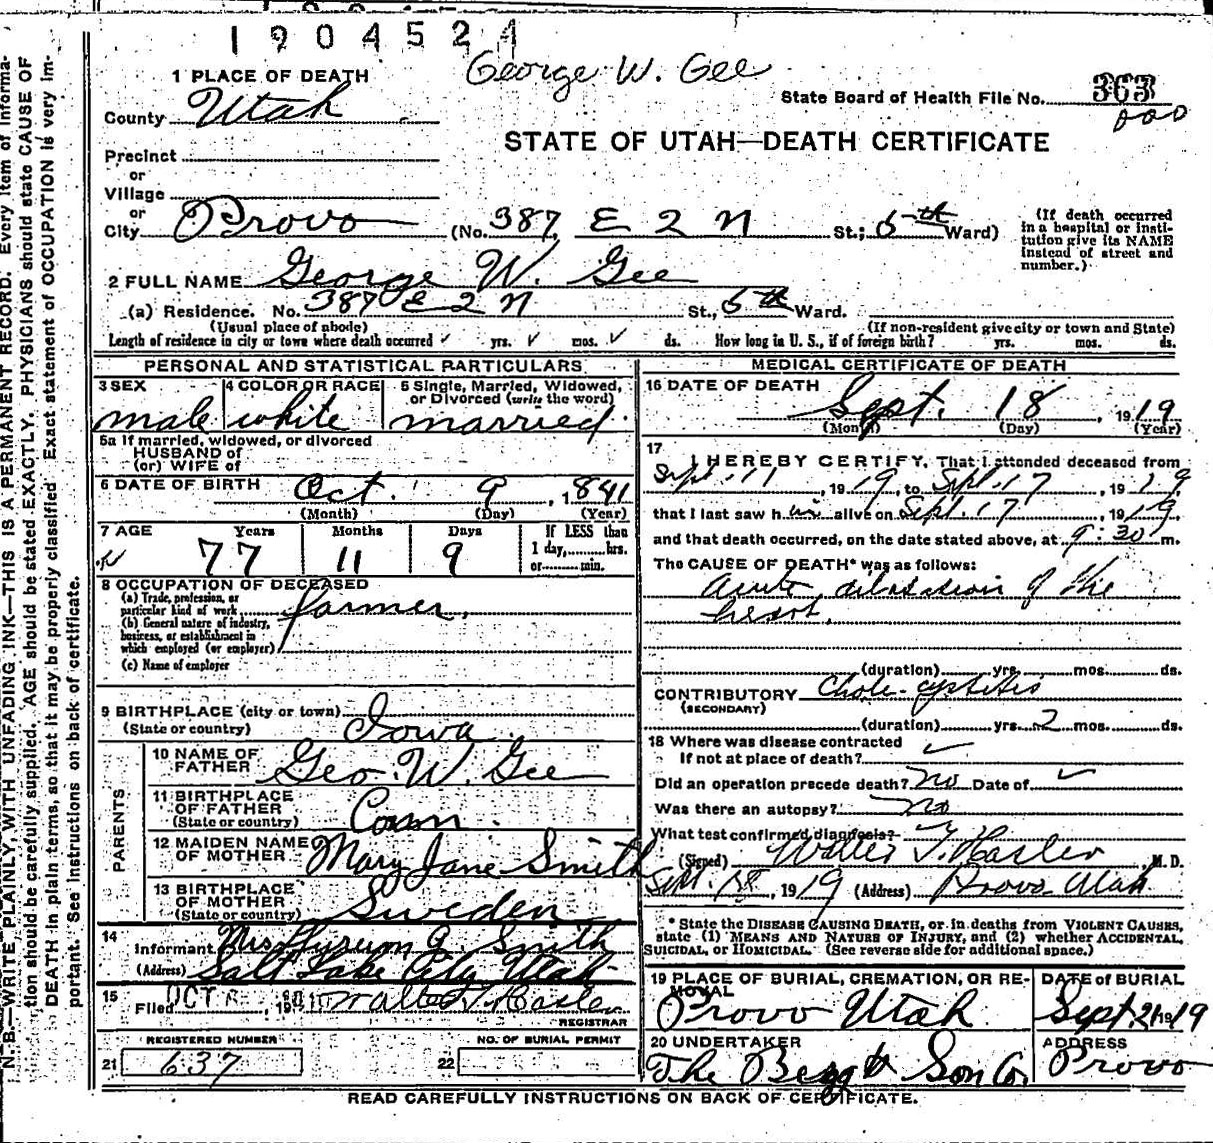 1904524
George W. Gee
1 PLACE OF DEATH
State Board of Health File No. 363
000
County Utah
STATE OF UTAH—DEATH CERTIFICATE
Precinct
or
Village
or
City Provo (No. 387 E 2 N St.; 5th Ward)
(If death occurred in a hospital or institution give its NAME instead of street and number.)
2 FULL NAME George W. Gee
(a) Residence. No. 387 E 2 N St., 5th Ward.
(Usual place of abode) (If non-resident give city or town and State)
Length of residence in city or town where death occurred yrs. mos. ds. How long in U. S., if of foreign birth? yrs. mos. ds.
PERSONAL AND STATISTICAL PARTICULARS
3 SEX 4 COLOR OR RACE 5 Single, Married, Widowed, or Divorced (write the word)
male white married.
5a If married, widowed, or divorced
HUSBAND of
(or) WIFE of
6 DATE OF BIRTH Oct. 9, 1841
(Month) (Day) (Year)
7 AGE Years Months Days If LESS than
77 11 9 1 day,......hrs.
or......min.
8 OCCUPATION OF DECEASED
(a) Trade, profession, or
particular kind of work farmer,
(b) General nature of industry,
business, or establishment in
which employed (or employer)
(c) Name of employer
9 BIRTHPLACE (city or town)
(State or country) Iowa
PARENTS
10 NAME OF FATHER Geo. W. Gee
11 BIRTHPLACE OF FATHER
(State or country) Conn.
12 MAIDEN NAME OF MOTHER Mary Jane Smith
13 BIRTHPLACE OF MOTHER
(State or country) Sweden
14
Informant Mrs Hyrum G. Smith
(Address) Salt Lake City Utah
15
Filed OCT Walter T. Hasler
REGISTRAR
REGISTERED NUMBER NO. OF BURIAL PERMIT
21 637 22
MEDICAL CERTIFICATE OF DEATH
16 DATE OF DEATH
Sept. 18, 1919
(Month) (Day) (Year)
17
I HEREBY CERTIFY, That I attended deceased from
Sept. 11, 1919, to Sept. 17, 1919,
that I last saw him alive on Sept. 17, 1919,
and that death occurred, on the date stated above, at 9:30 m.
The CAUSE OF DEATH* was as follows:
acute dilatation of the
heart.
(duration) yrs. mos. ds.
CONTRIBUTORY Chole-cystitis
(SECONDARY)
(duration) yrs. 2 mos. ds.
18 Where was disease contracted
If not at place of death?
Did an operation precede death? no Date of
Was there an autopsy? no
What test confirmed diagnosis?
(Signed) Walter T. Hasler, M.D.
Sept. 1919 (Address) Provo Utah
* State the DISEASE CAUSING DEATH, or in deaths from VIOLENT CAUSES,
state (1) MEANS AND NATURE OF INJURY, and (2) whether ACCIDENTAL,
SUICIDAL, or HOMICIDAL. (See reverse side for additional space.)
19 PLACE OF BURIAL, CREMATION, OR REMOVAL DATE of BURIAL
Provo Utah Sept. 21 1919
20 UNDERTAKER ADDRESS
The Berg & Son Co. Provo
READ CAREFULLY INSTRUCTIONS ON BACK OF CERTIFICATE.
N. B.—WRITE PLAINLY, WITH UNFADING INK—THIS IS A PERMANENT RECORD. Every item of informa-
tion should be carefully supplied. AGE should be stated EXACTLY. PHYSICIANS should state CAUSE OF
DEATH in plain terms, so that it may be properly classified. Exact statement of OCCUPATION is very im-
portant. See instructions on back of certificate.